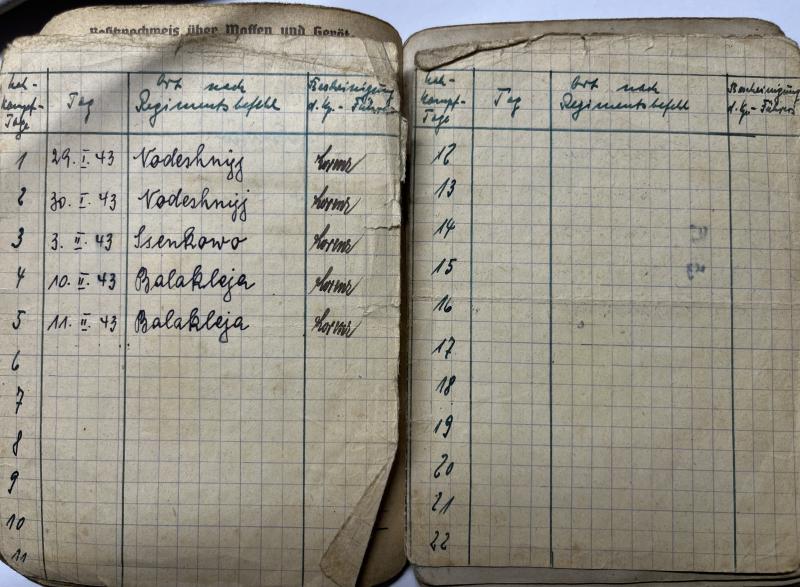 Besitznachweis über Waffen und Gerät
Nah-
kampf-
Tage
Tag
Ort nach
Regimentsbefehl
Bescheinigung
d. Kp.-Führer
1 29. I. 43 Nodeshnyj Lorenz
2 30. I. 43 Nodeshnyj Lorenz
3 3. II. 43 Ssenkowo Lorenz
4 10. II. 43 Balakleja Lorenz
5 11. II. 43 Balakleja Lorenz
6
7
8
9
10
11
Nah-
kampf-
Tage
Tag
Ort nach
Regimentsbefehl
Bescheinigung
d. Kp.-Führer
12
13
14
15
16
17
18
19
20
21
22